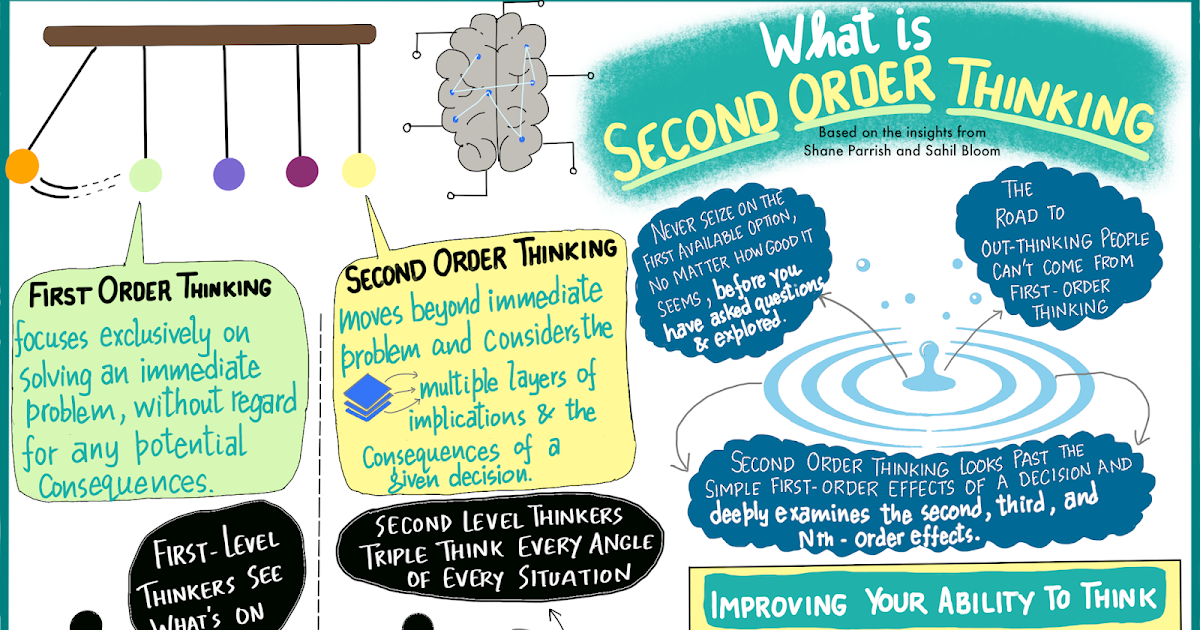 What is
SECOND ORDER THINKING
Based on the insights from
Shane Parrish and Sahil Bloom
FIRST ORDER THINKING
focuses exclusively on
solving an immediate
problem, without regard
for any potential
Consequences.
SECOND ORDER THINKING
moves beyond immediate
problem and considers the
multiple layers of
implications & the
Consequences of a
given decision.
NEVER SEIZE ON THE
FIRST AVAILABLE OPTION,
NO MATTER HOW GOOD IT
SEEMS, before you
have asked questions
& explored.
THE
ROAD TO
OUT-THINKING PEOPLE
CAN'T COME FROM
FIRST-ORDER
THINKING
SECOND ORDER THINKING LOOKS PAST THE
SIMPLE FIRST-ORDER EFFECTS OF A DECISION AND
deeply examines the second, third, and
Nth-order effects.
FIRST-LEVEL
THINKERS SEE
WHAT'S ON
SECOND LEVEL THINKERS
TRIPLE THINK EVERY ANGLE
OF EVERY SITUATION
IMPROVING YOUR ABILITY TO THINK